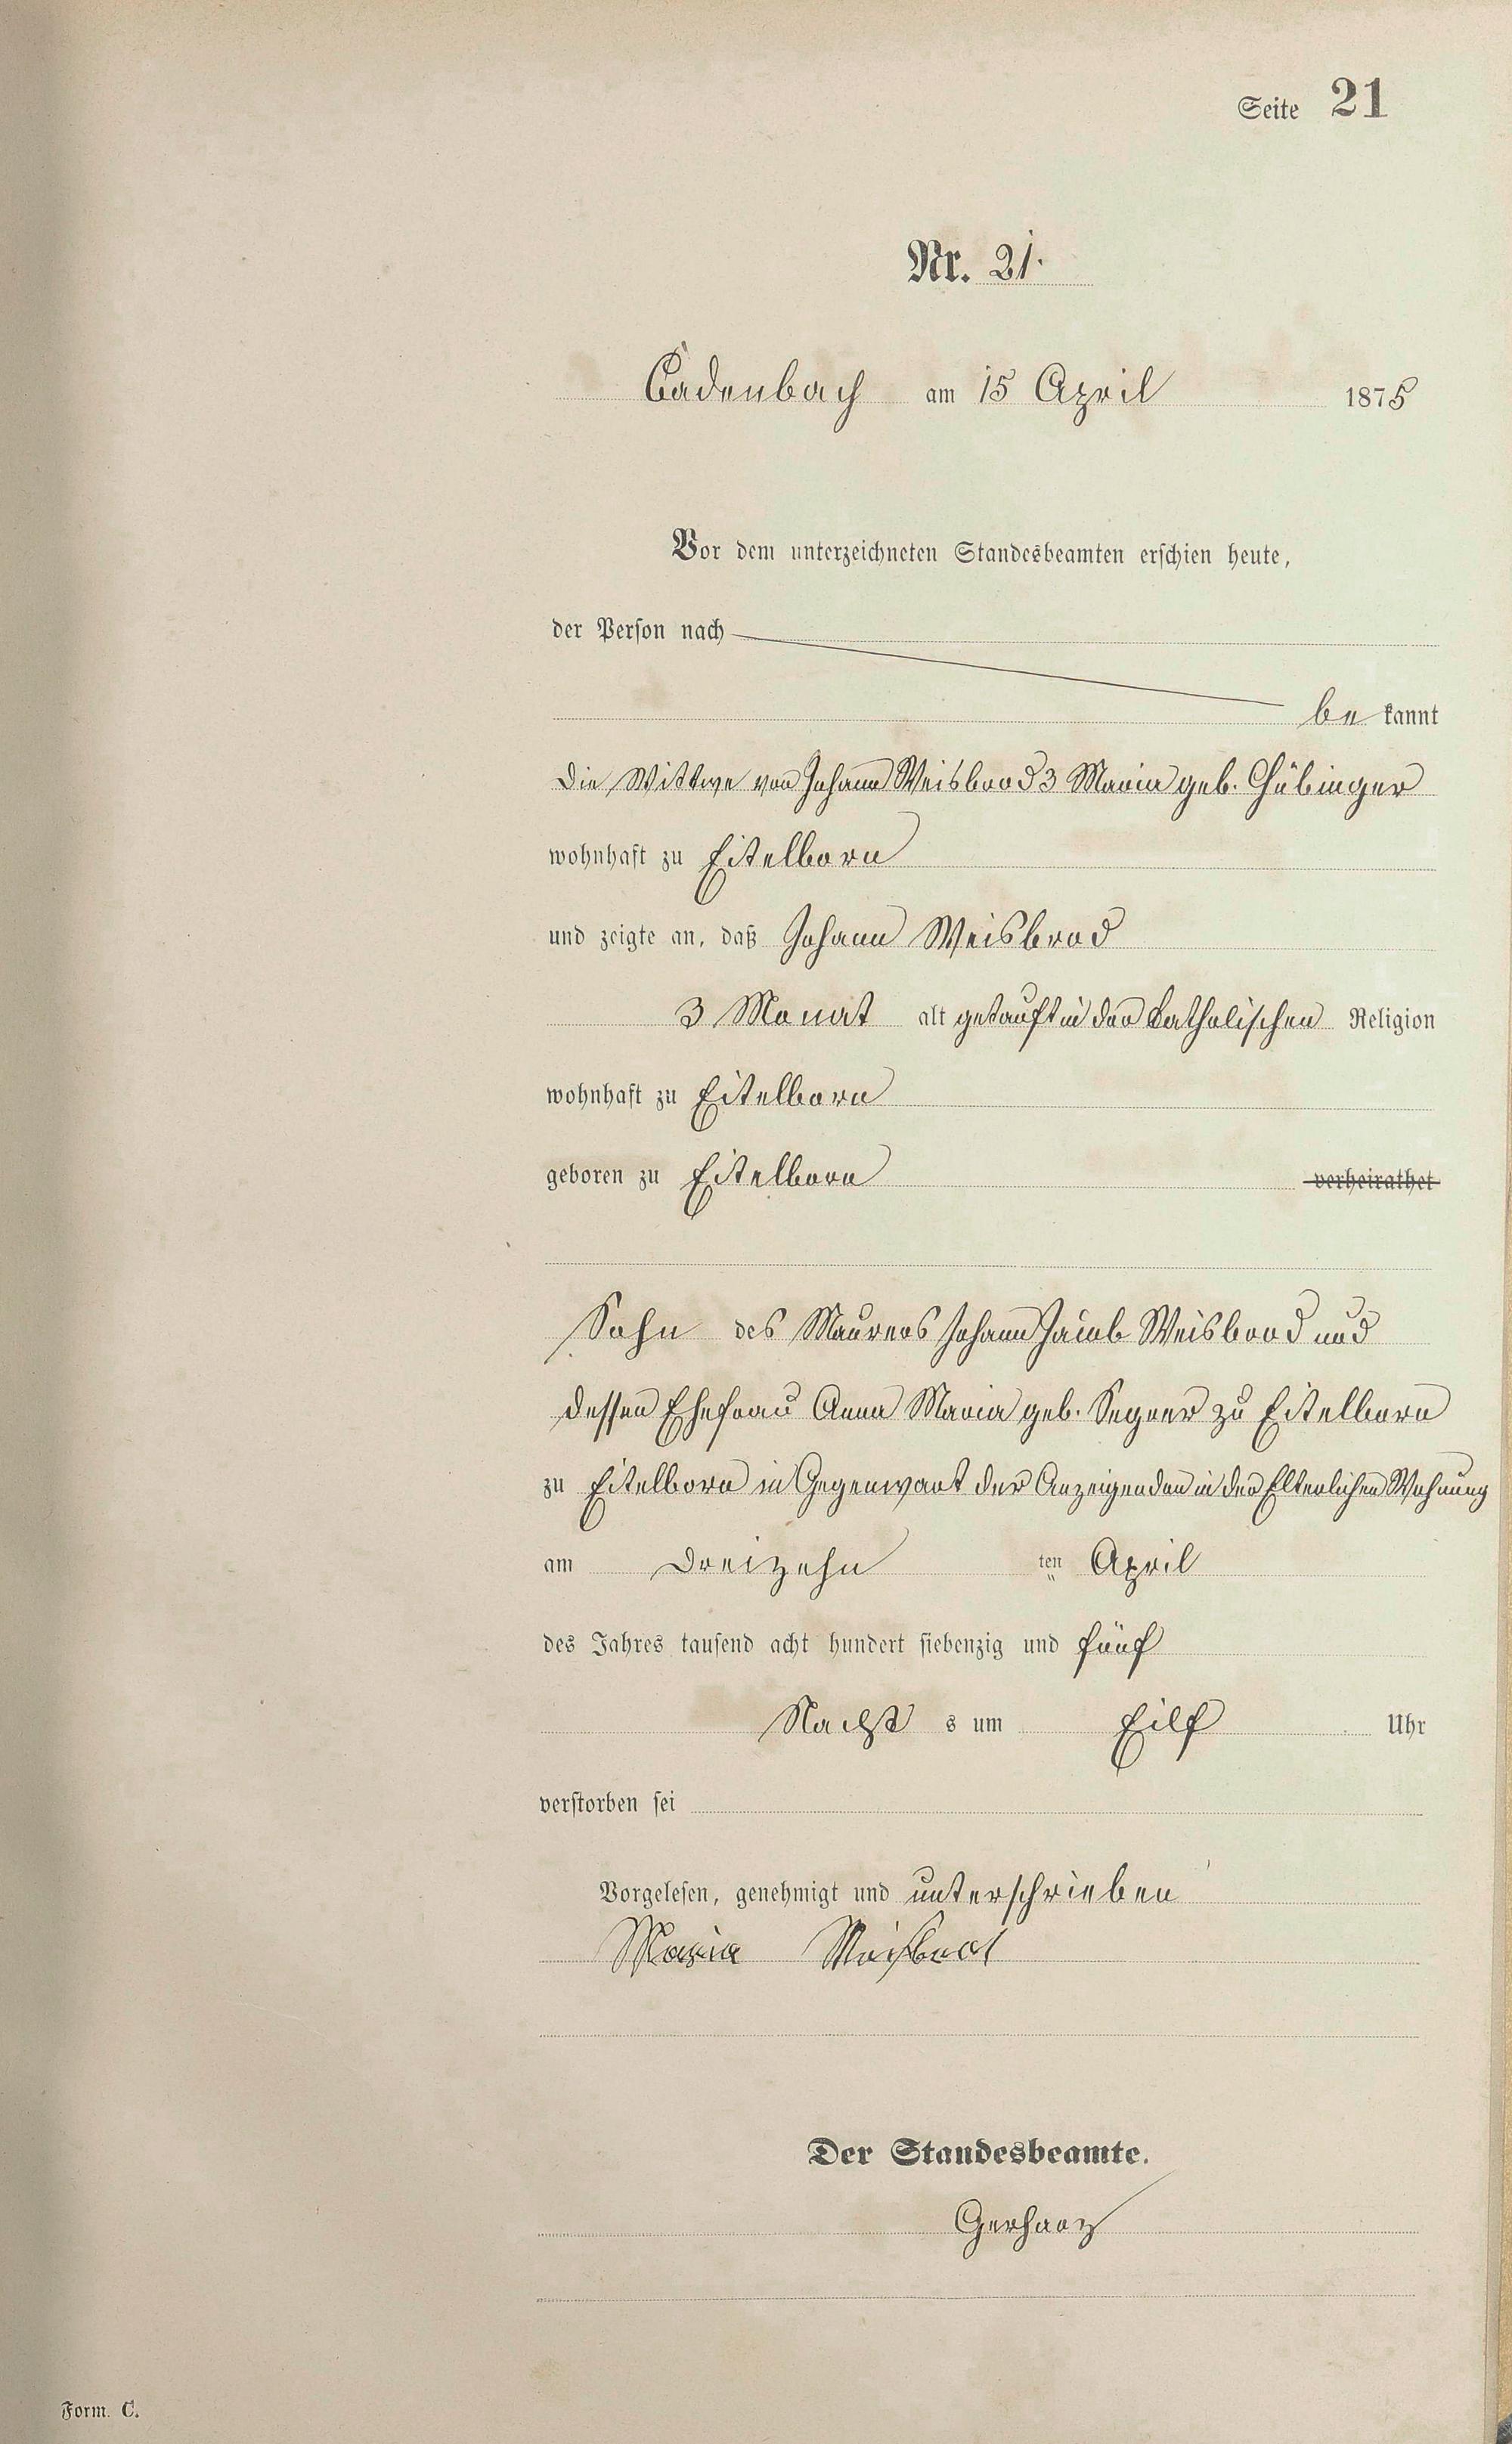 Seite 21
Nr. 21.
Cadenbach am 15 April 1875
Vor dem unterzeichneten Standesbeamten erschien heute,
der Person nach
be kannt
die Wittwe von Johann Weisbrod 3 Maria geb. Hübinger
wohnhaft zu Eitelborn
und zeigte an, daß Johann Weisbrod
3 Monat alt getauft in der Katholischen Religion
wohnhaft zu Eitelborn
geboren zu Eitelborn verheirathet
Sohn des Maurers Johann Jacob Weisbrod und
dessen Ehefrau Anna Maria geb. Segner zu Eitelborn
zu Eitelborn in Gegenwart der Anzeigenden in der Elterlichen Wohnung
am dreizehn ten April
des Jahres tausend acht hundert siebenzig und fünf
Nacht s um Eilf Uhr
verstorben sei
Vorgelesen, genehmigt und unterschrieben
Maria Weisbrod
Der Standesbeamte.
Gerharz
Form. C.